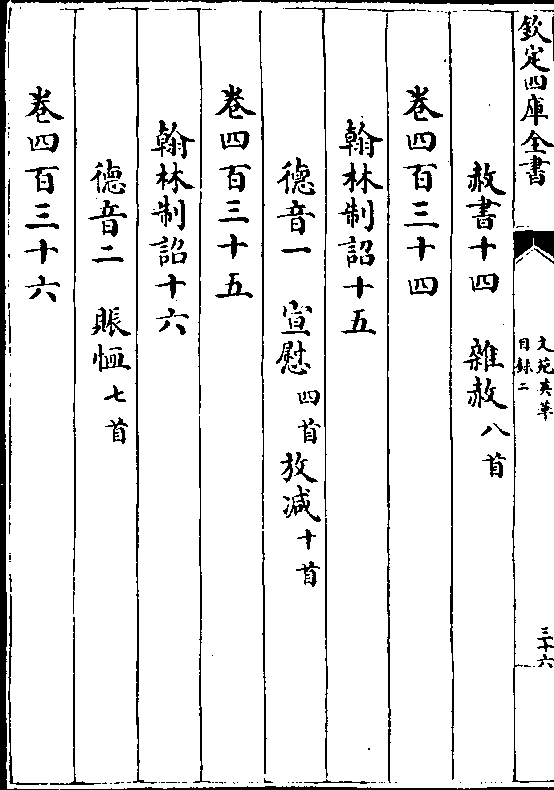 欽定四庫全書
文苑英華
目録二
三十六
赦書十四 雜赦八首
卷四百三十四
翰林制詔十五
德音一 宣慰四首放減十首
卷四百三十五
翰林制詔十六
德音二 賑恤七首
卷四百三十六